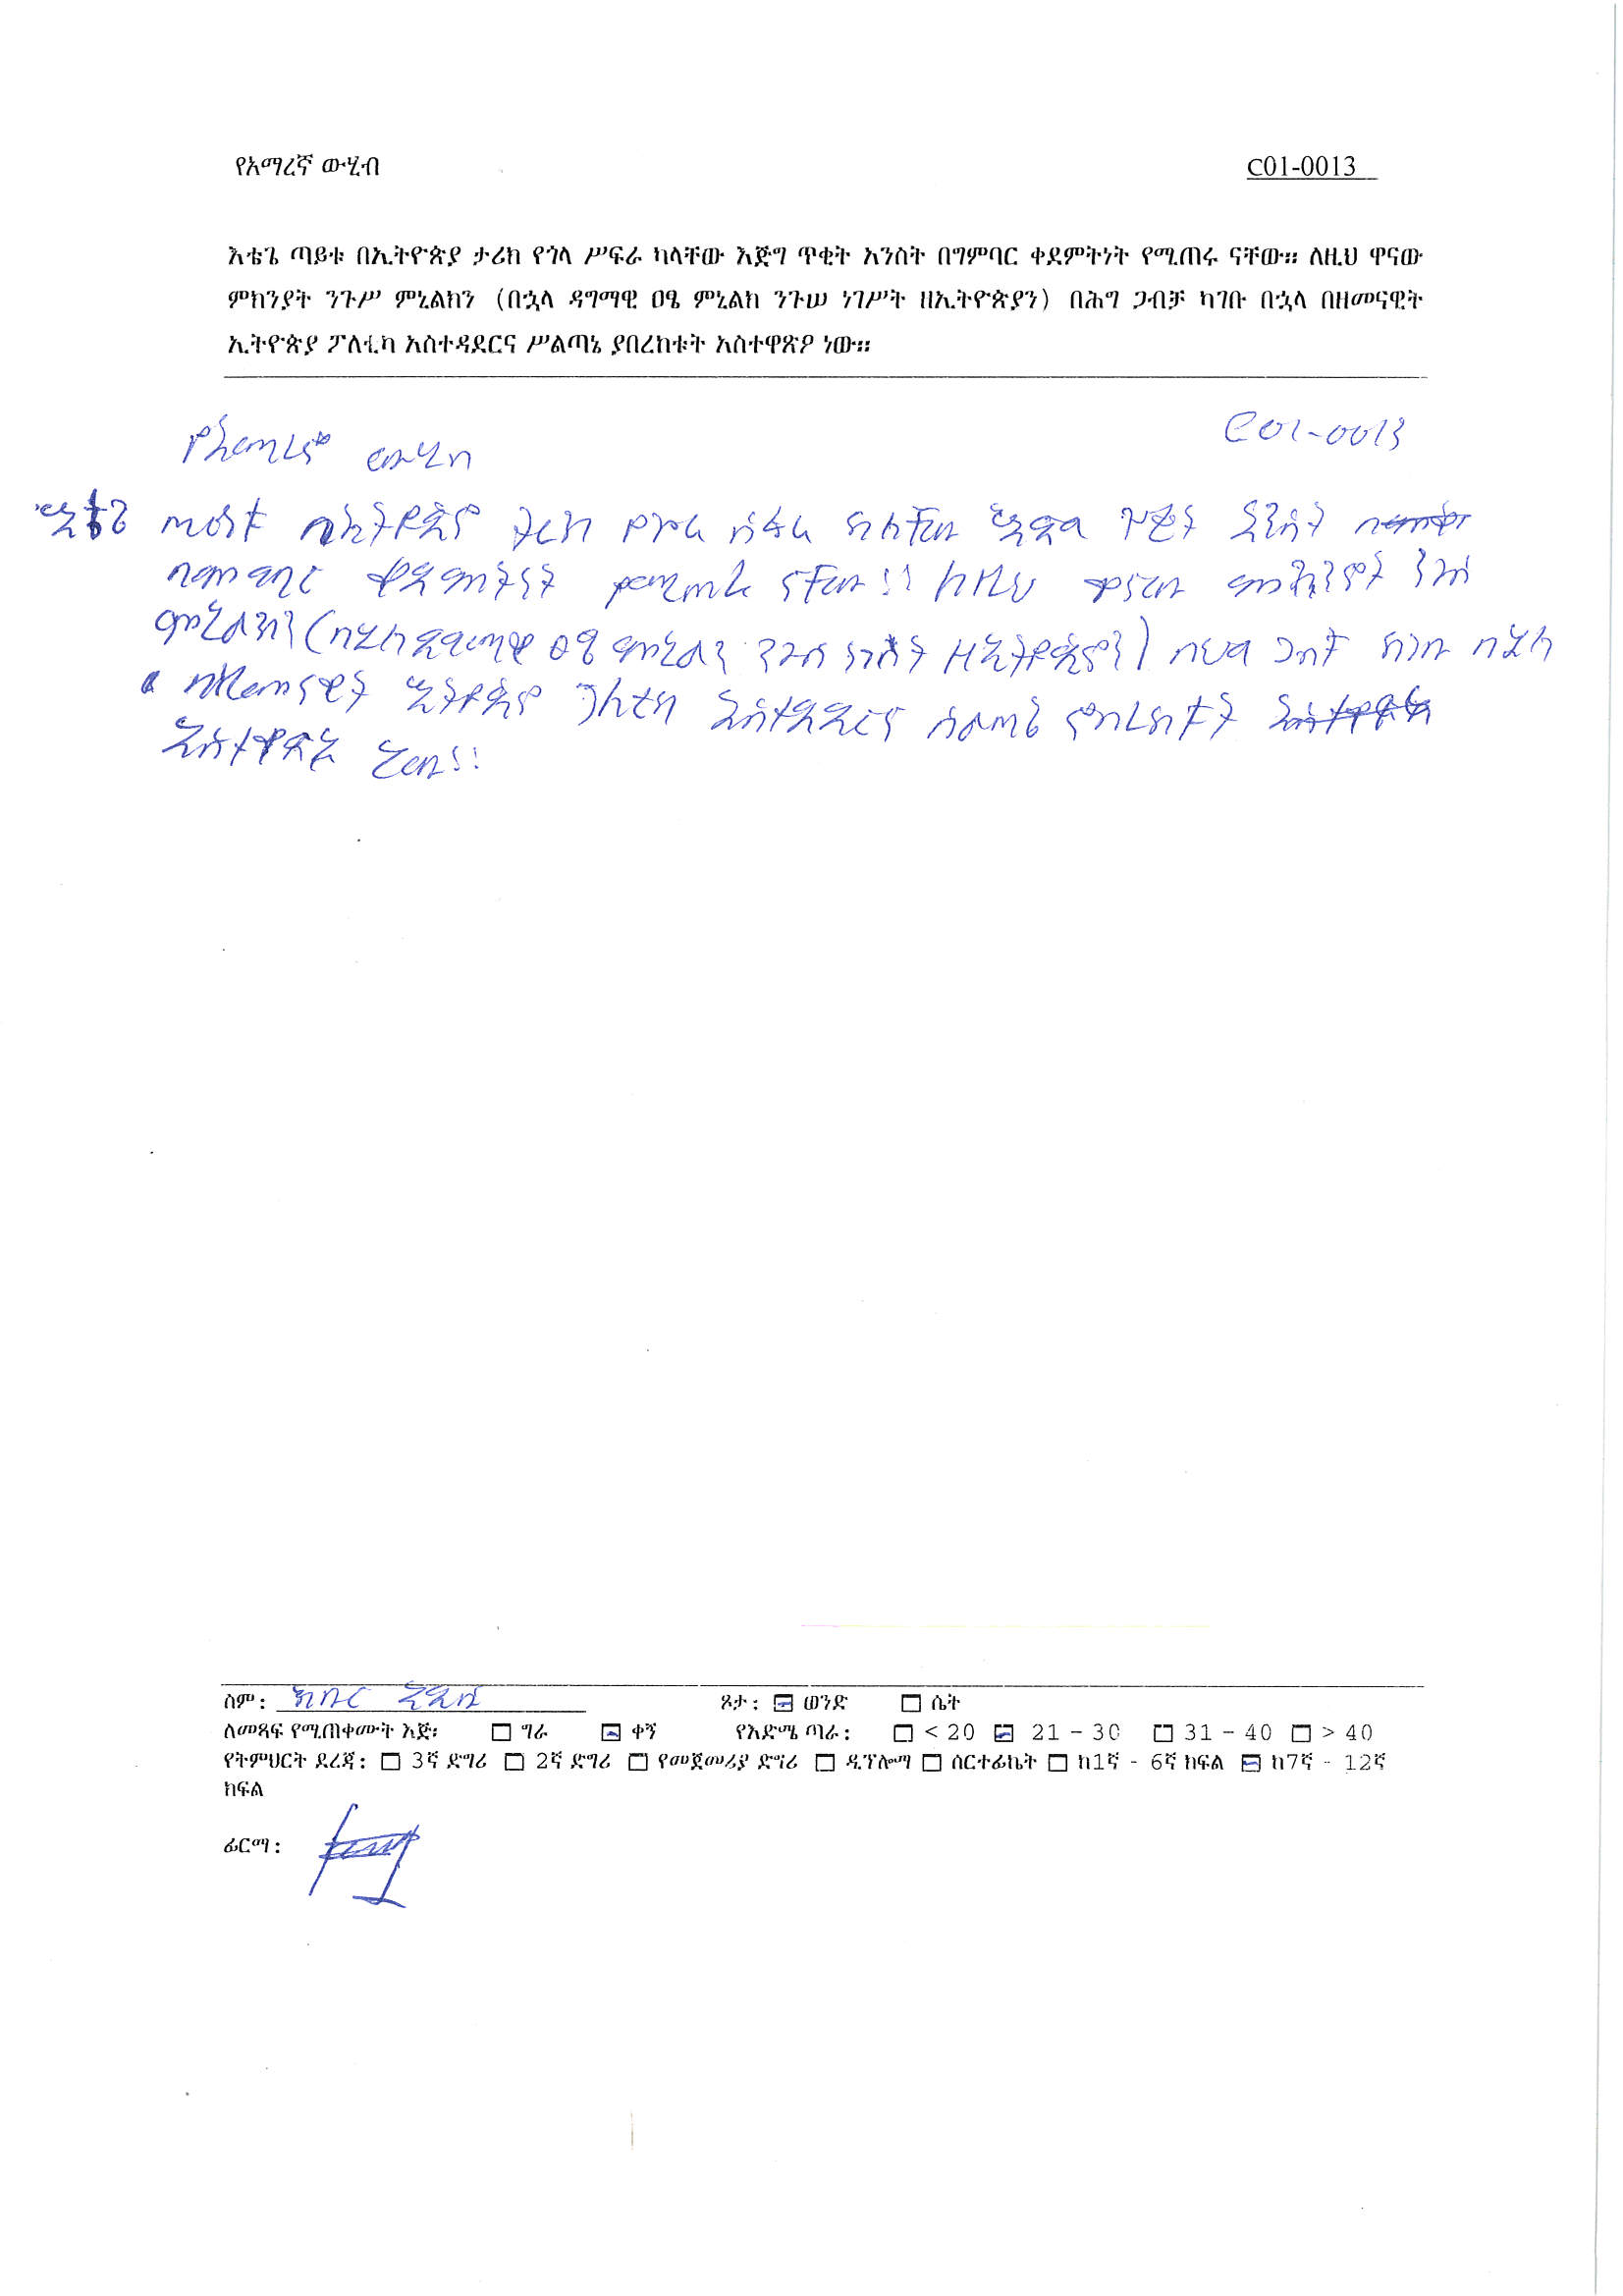 የአማረኛ ውሂብ C01-0013
እቴጌ ጣይቱ በኢትዮጵያ ታሪክ የጎላ ሥፍራ ካላቸው እጅግ ጥቂት አንስት በግምባር ቀደምትነት የሚጠሩ ናቸው። ለዚህ ዋናው
ምክንያት ንጉሥ ምኒልክን (በኋላ ዳግማዊ ዐፄ ምኒልክ ንጉሠ ነገሥት ዘኢትዮጵያን) በሕግ ጋብቻ ካገቡ በኋላ በዘመናዊት
ኢትዮጵያ ፖለቲካ አስተዳደርና ሥልጣኔ ያበረከቱት አስተዋጽዖ ነው።
የአማረኛ ውሂብ C01-0013
እቴጌ ጣይቱ በኢትዮጵያ ታሪክ የጎላ ሥፍራ ካላቸው እጅግ ጥቂት አንስት
በግምባር ቀደምትነት የሚጠሩ ናቸው። ለዚህ ዋናው ምክንያት ንጉሥ
ምኒልክን (በኋላ ዳግማዊ ዐፄ ምኒልክ ንጉሠ ነገሥት ዘኢትዮጵያን) በሕግ ጋብቻ ካገቡ በኋላ
በዘመናዊት ኢትዮጵያ ፖለቲካ አስተዳደርና ሥልጣኔ ያበረከቱት
አስተዋጽዖ ነው።
ስም: ክብር አዲሱ ጾታ: ወንድ ሴት
ለመጻፍ የሚጠቀሙት እጅ: ግራ ቀኝ የእድሜ ጣራ: < 20 21 – 30 31 – 40 > 40
የትምህርት ደረጃ: 3ኛ ድግሪ 2ኛ ድግሪ የመጀመሪያ ድግሪ ዲፕሎማ ሰርተፊኬት ከ1ኛ - 6ኛ ክፍል ከ7ኛ - 12ኛ
ክፍል
ፊርማ: